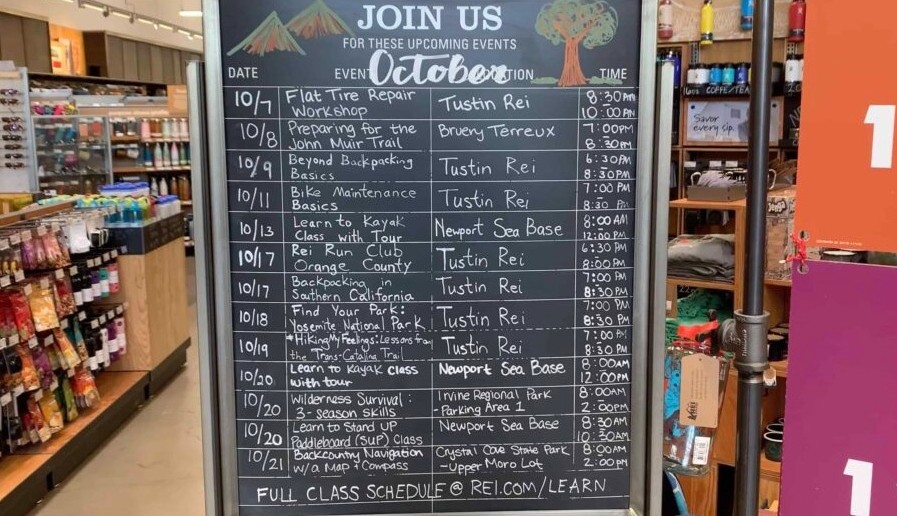 JOIN US
FOR THESE UPCOMING EVENTS
October
DATE EVENT LOCATION TIME
10/7 Flat Tire Repair Workshop Tustin Rei 8:30 AM - 10:00 AM
10/8 Preparing for the John Muir Trail Bruery Terreux 7:00PM - 8:30 PM
10/9 Beyond Backpacking Basics Tustin Rei 6:30PM - 8:30PM
10/11 Bike Maintenance Basics Tustin Rei 7:00 PM - 8:30 PM
10/13 Learn to Kayak Class with Tour Newport Sea Base 8:00 AM - 12:00 PM
10/17 Rei Run Club Orange County Tustin Rei 6:30 PM - 8:00PM
10/17 Backpacking in Southern California Tustin Rei 7:00 PM - 8:30 PM
10/18 Find Your Park: Yosemite National Park Tustin Rei 7:00 PM - 8:30 PM
10/19 *Hiking My Feelings: Lessons from the Trans-Catalina Trail Tustin Rei 7:00 PM - 8:30 PM
10/20 Learn to Kayak Class with tour Newport Sea Base 8:00AM - 12:00PM
10/20 Wilderness Survival: 3-season skills Irvine Regional Park -Parking Area 1 8:00AM - 2:00PM
10/20 Learn to Stand UP Paddleboard (SUP) Class Newport Sea Base 8:30AM - 10:30AM
10/21 Backcountry Navigation w/a Map + Compass Crystal Cove State Park -Upper Moro Lot 8:00AM - 2:00PM
FULL CLASS SCHEDULE @ REI.COM/LEARN
COFFE/TEA
Savor
every sip.
1
1